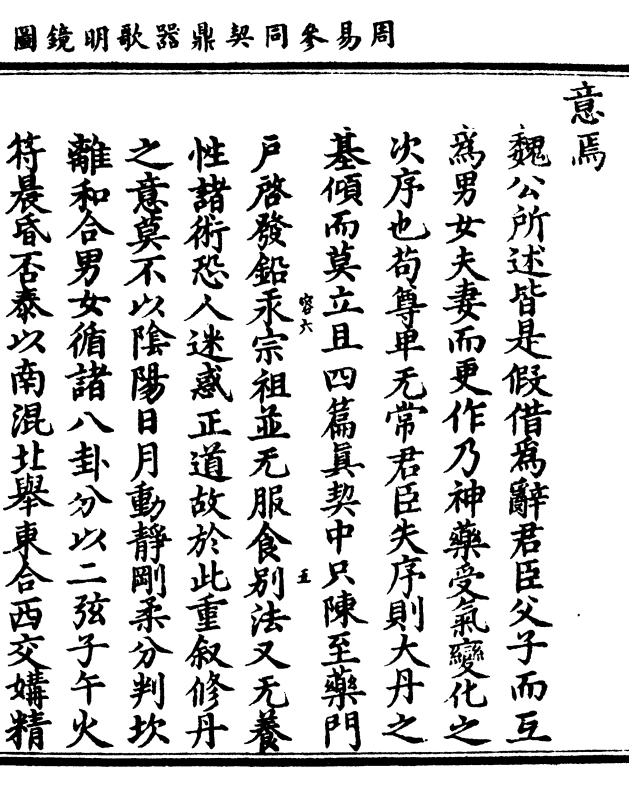 周易參同契鼎器歌明鏡圖
意焉
魏公所述皆是假借爲辭君臣父子而互
爲男女夫妻而更作乃神藥受氣變化之
次序也苟尊卑无常君臣失序則大丹之
基傾而莫立且四篇眞契中只陳至藥門
容六
五
戶啓發鉛汞宗祖並无服食别法又无養
性諸術恐人迷惑正道故於此重叙修丹
之意莫不以陰陽日月動靜剛柔分判坎
離和合男女循諸八卦分以二弦子午火
符晨昏否泰以南混北舉東合西交媾精